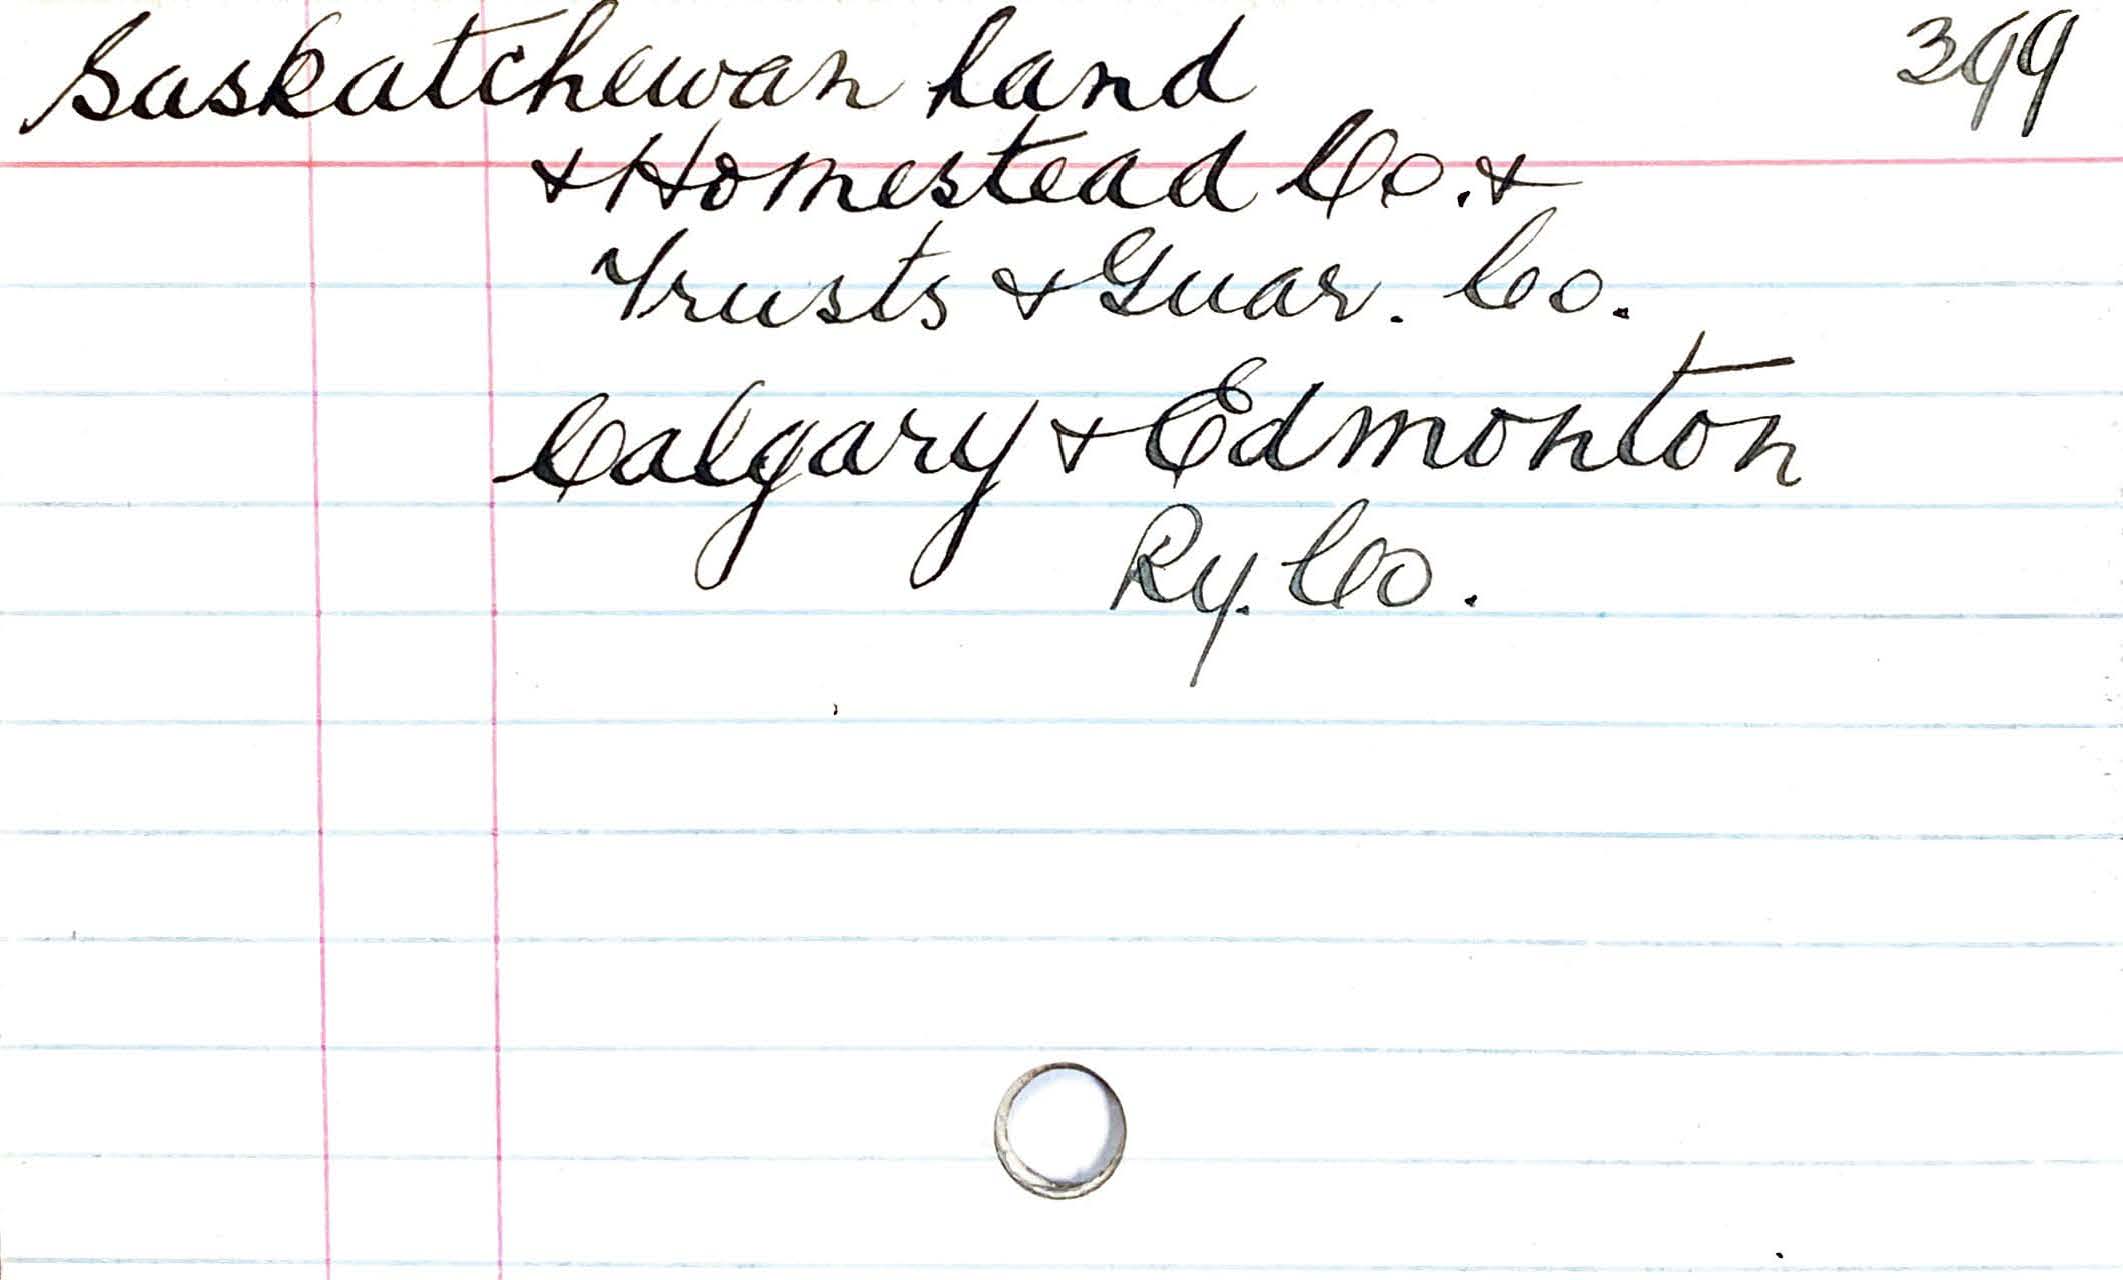 Saskatchewan Land 399
& Homestead Co. &
Trusts & Guar. Co.
Calgary & Edmonton
Ry. Co.